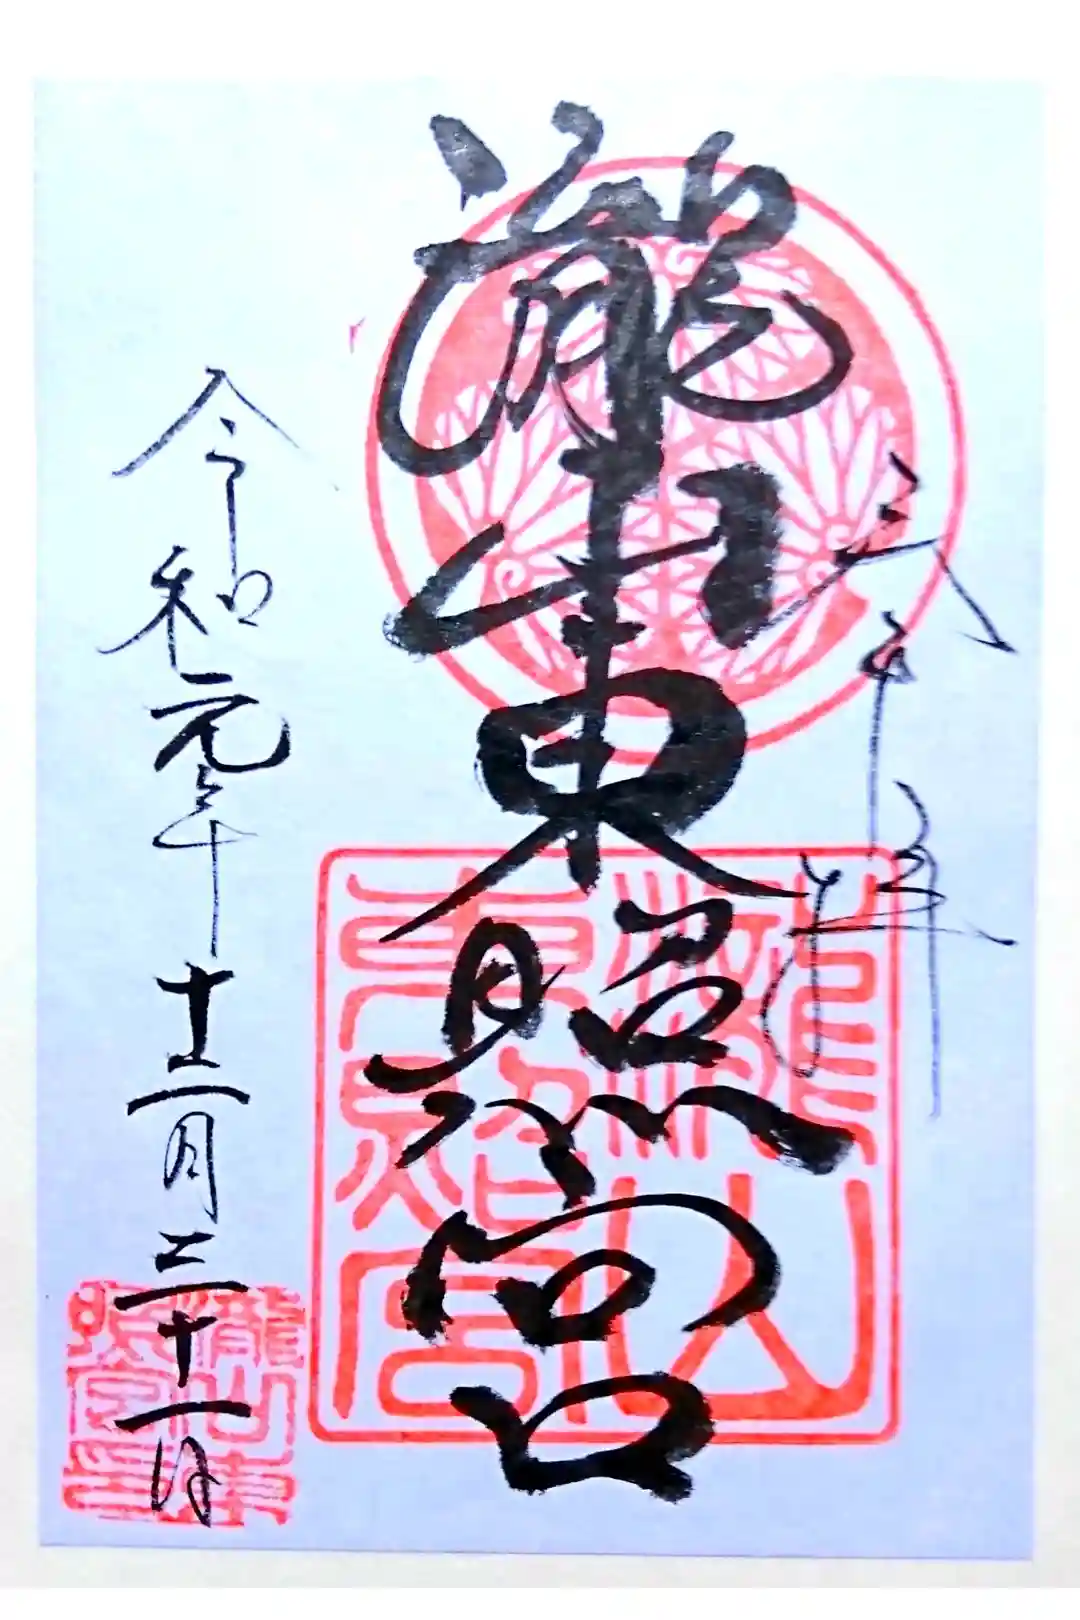 瀧山東照宮
令和元年十二月三十一日
瀧山
東照宮
瀧山東
照宮印